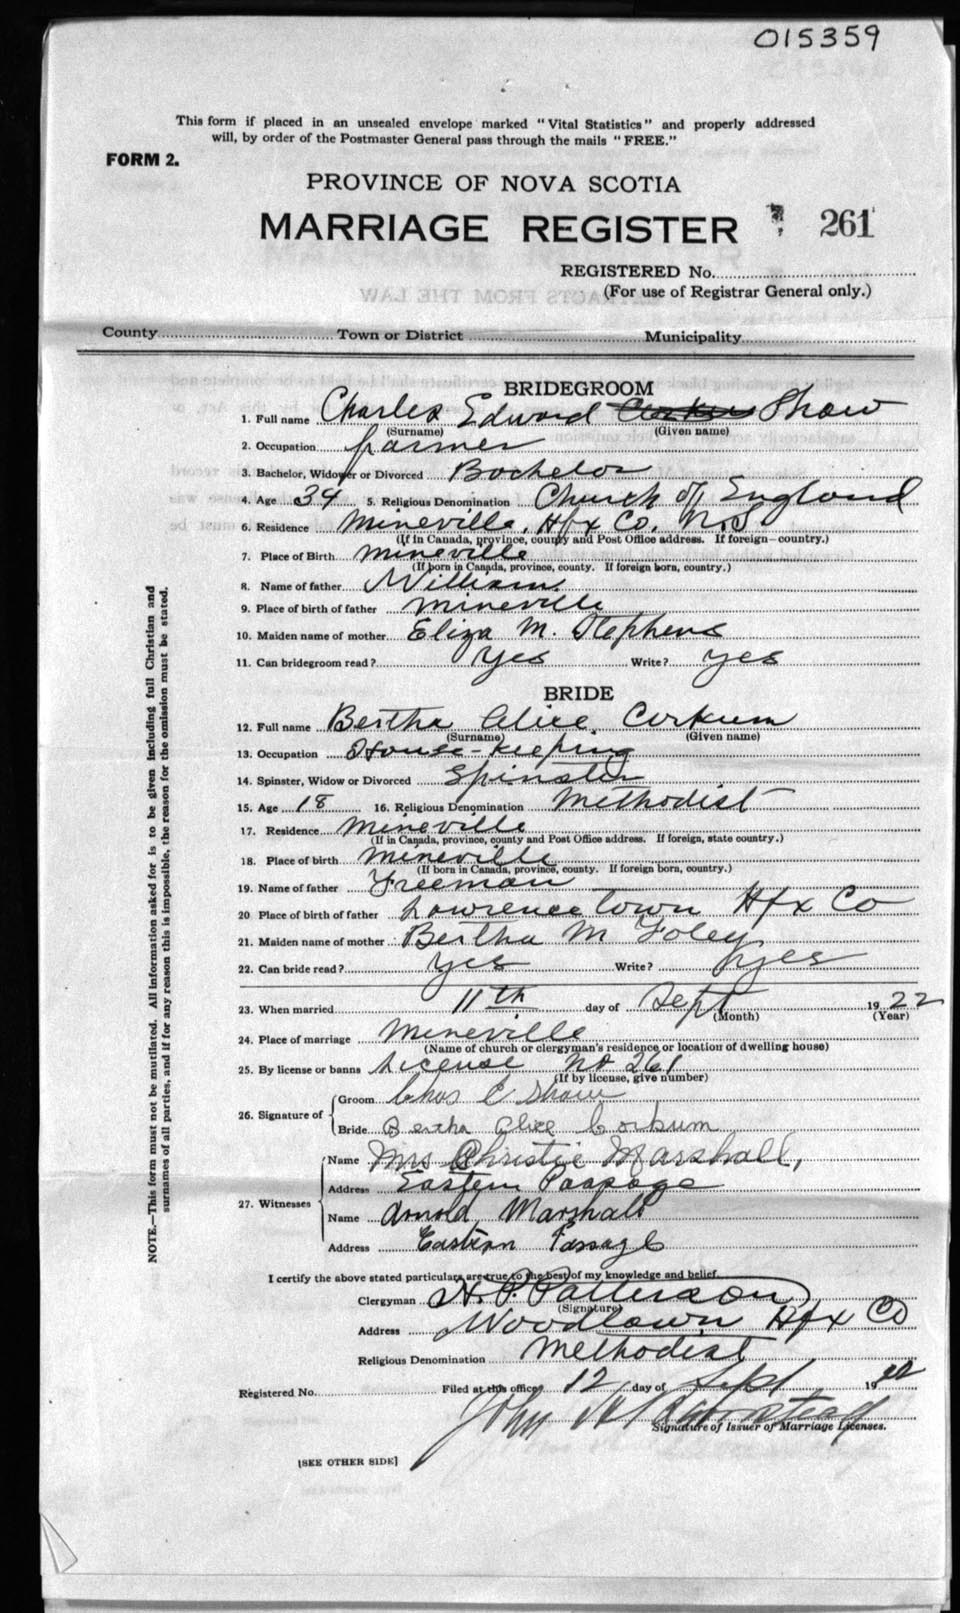 015359
This form if placed in an unsealed envelope marked "Vital Statistics" and properly addressed
will, by order of the Postmaster General pass through the mails "FREE."
FORM 2.
PROVINCE OF NOVA SCOTIA
MARRIAGE REGISTER 261
REGISTERED No.
(For use of Registrar General only.)
County Town or District Municipality
BRIDEGROOM
1. Full name Charles Edward Corkum Shaw
(Surname) (Given name)
2. Occupation farmer
3. Bachelor, Widower or Divorced Bachelor
4. Age 34 5. Religious Denomination Church of England
6. Residence Mineville, Hfx Co. N.S
(If in Canada, province, county and Post Office address. If foreign-country.)
7. Place of Birth Mineville
(If born in Canada, province, county. If foreign born, country.)
8. Name of father William
9. Place of birth of father Mineville
10. Maiden name of mother Eliza M. Stephens
11. Can bridegroom read? Yes Write? yes
BRIDE
12. Full name Bertha Alice Corkum
(Surname) (Given name)
13. Occupation House-keeping
14. Spinster, Widow or Divorced Spinster
15. Age 18 16. Religious Denomination Methodist
17. Residence Mineville
(If in Canada, province, county and Post Office address. If foreign, state country.)
18. Place of birth Mineville
(If born in Canada, province, county. If foreign born, country.)
19. Name of father Freeman
20 Place of birth of father Lawrencetown Hfx Co
21. Maiden name of mother Bertha M Foley
22. Can bride read? yes Write? yes
23. When married 11th day of Sept 1922
(Month) (Year)
24. Place of marriage Mineville
(Name of church or clergyman's residence or location of dwelling house)
25. By license or banns License No 261
(If by license, give number)
26. Signature of
Groom Chas E Shaw
Bride Bertha Alice Corkum
27. Witnesses
Name Mrs Christie Marshall,
Address Eastern Passage
Name Arnold Marshall
Address Eastern Passage
I certify the above stated particulars are true to the best of my knowledge and belief.
Clergyman H. P. Patterson
(Signature)
Address Woodlawn Hfx Co
Religious Denomination Methodist
Registered No. Filed at this office 12 day of Sept 1922
John
Signature of Issuer of Marriage Licenses.
[SEE OTHER SIDE]
NOTE.—This form must not be mutilated. All information asked for is to be given including full Christian and
surnames of all parties, and if for any reason this is impossible, the reason for the omission must be stated.